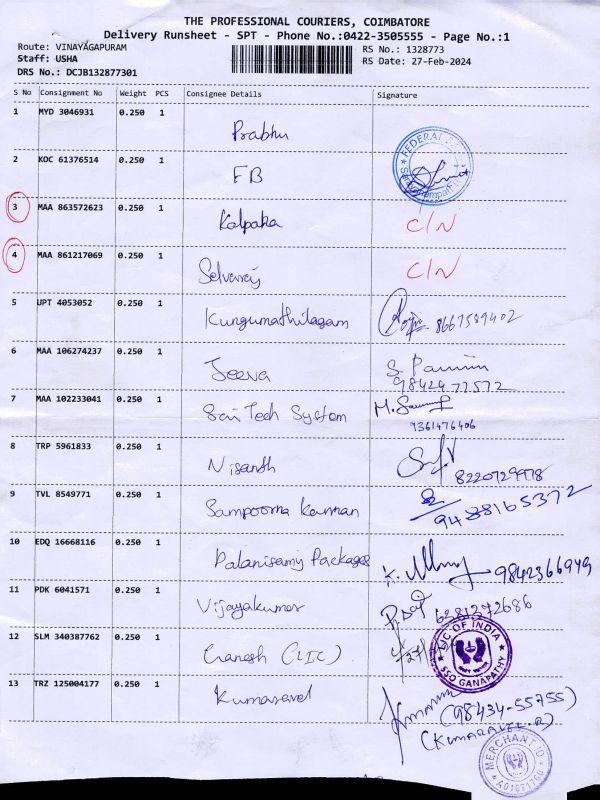 THE PROFESSIONAL COURIERS, COIMBATORE
Delivery Runsheet - SPT - Phone No.:0422-3505555 - Page No.:1
Route: VINAYAGAPURAM
Staff: USHA
DRS No.: DCJB132877301
RS No.: 1328773
RS Date: 27-Feb-2024
S No Consignment No Weight PCS Consignee Details Signature
1 MYD 3046931 0.250 1 Prabhu
2 KOC 61376514 0.250 1 FB
FEDERAL
3 MAA 863572623 0.250 1 Kalpaka C/N
4 MAA 861217069 0.250 1 Selvaraj C/N
5 UPT 4053052 0.250 1 Kungumathilagam 8667589402
6 MAA 106274237 0.250 1 Jeeva S.
9842977572
7 MAA 102233041 0.250 1 Sai Tech System M.
9361476406
8 TRP 5961833 0.250 1 Nisanth
8220729978
9 TVL 8549771 0.250 1 Sampoorna Kannan
9488165372
10 EDQ 16668116 0.250 1 Palanisamy Packages K. 9842366949
11 PDK 6041571 0.250 1 Vijayakumar 6381272686
12 SLM 340387762 0.250 1 Ganesh (LIC)
LIC OF INDIA
SSO GANAPATHY
13 TRZ 125004177 0.250 1 Kumaravel (98434-55755)
(KUMARAVEL.R)
MERCHANT ID